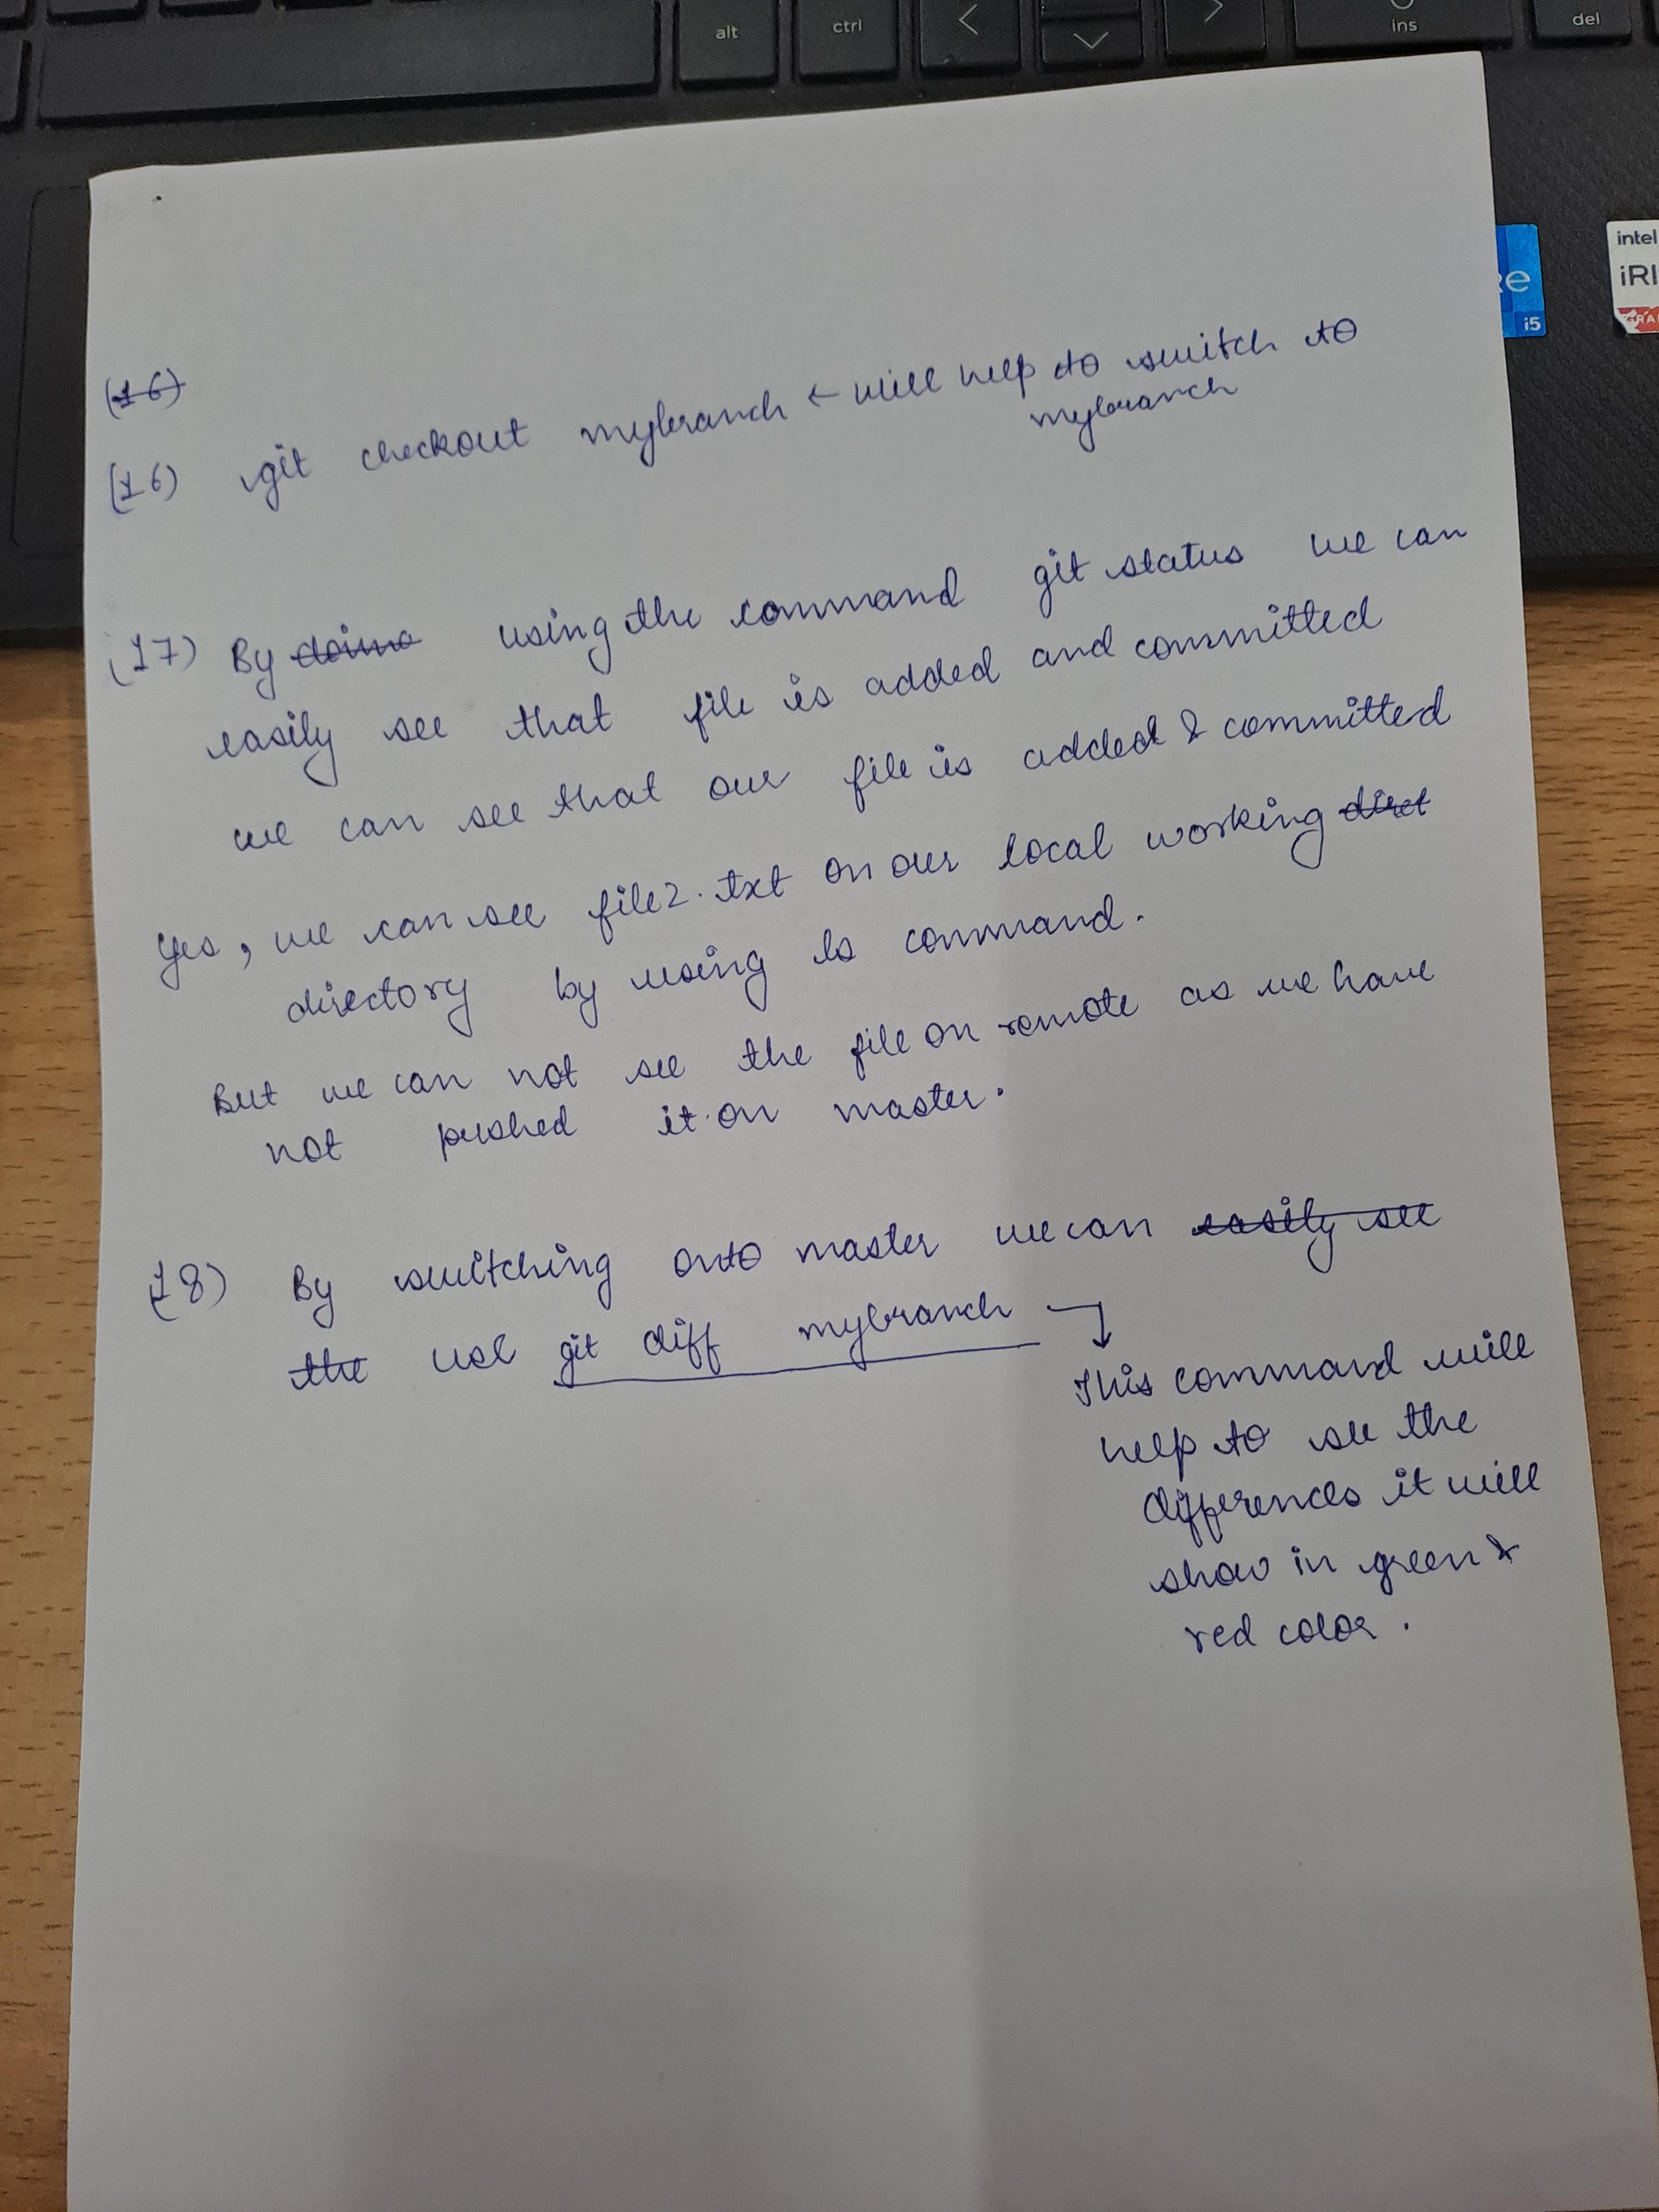 alt ctrl < ins del
intel
iRI
RA
re
i5
(16)
(16) git checkout mybranch ← will help to switch to
mybranch
(17) By doing using the command git status we can
easily see that file is added and committed
we can see that our file is added & committed
Yes, we can see file2.txt on our local working direct
directory by using ls command.
But we can not see the file on remote as we have
not pushed it on master.
(18) By switching onto master we can easily see
the use git diff mybranch
This command will
help to see the
differences it will
show in green &
red color.